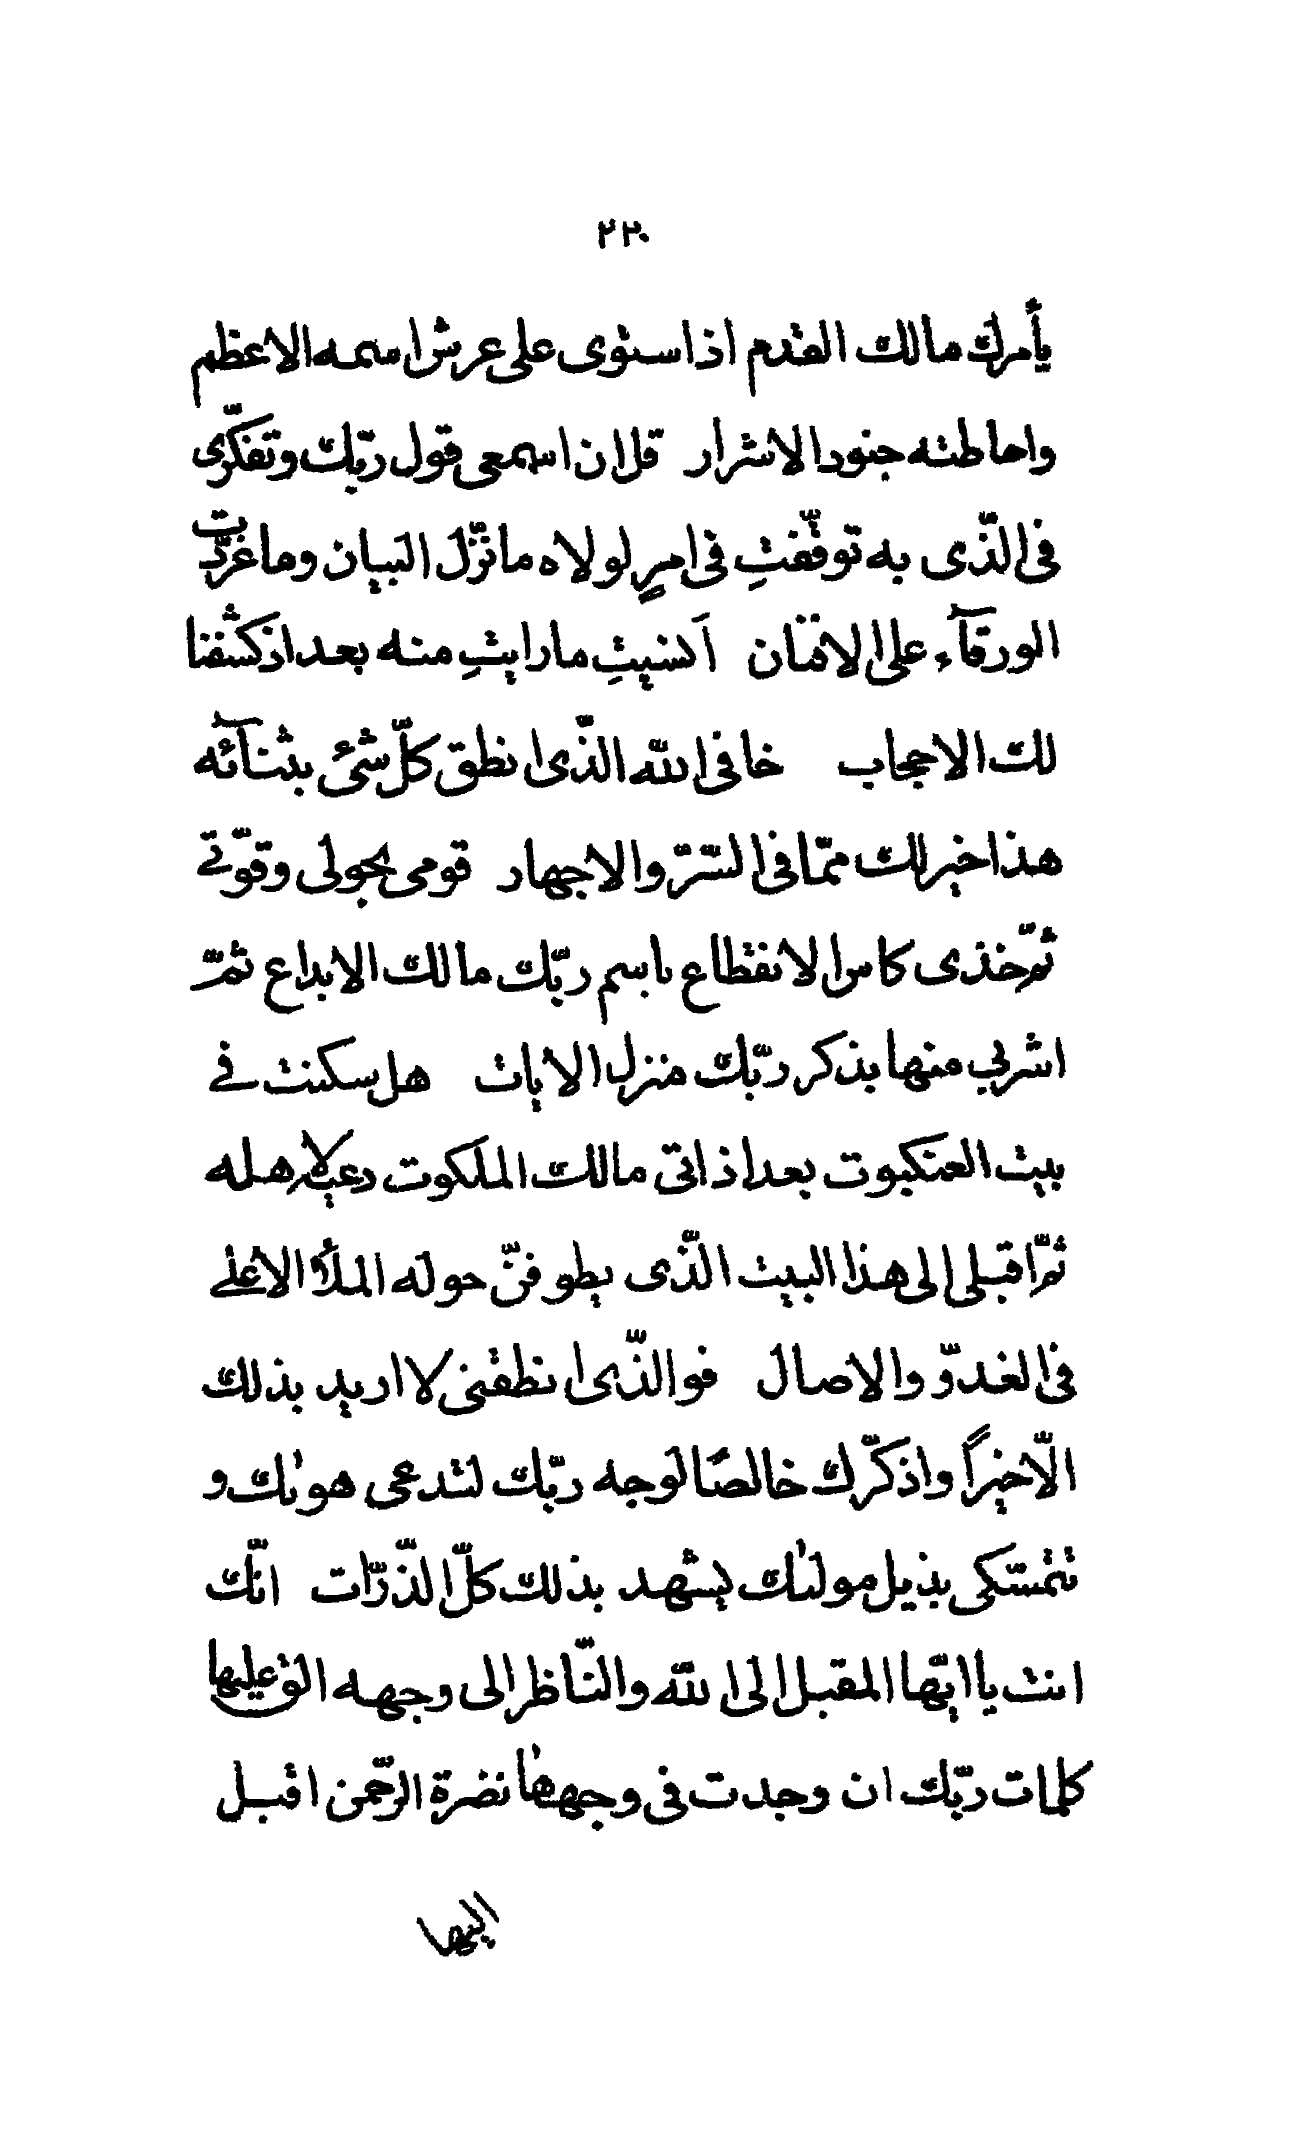 ٢٣٠
يأمرك مالك القدم اذا ستوى على عرش اسمه الاعظم
واحاطته جنود الاشرار قل ان اسمعى قول ربّك وتفكّرى
فى الّذى به توقّفتِ فى امرٍ لولاه ما نزّل البيان وما غرّدت
الورقآء على الافنان أنسيتِ ما رايتِ منه بعد اذ كشفنا
لك الاحجاب خافى الله الّذى انطق كلّ شئ بثنآئه
هذا خير لك ممّا فى السّرّ والاجهار قومى بحولى وقوّتى
ثمّ خذى كاس الانقطاع باسم ربّك مالك الابداع ثمّ
اشربي منها بذكر ربّك منزل الايات هل سكنت فى
بيت العنكبوت بعد اذ اتى مالك الملكوت دعيه لاهله
ثمّ اقبلى الى هذا البيت الّذى يطوفنّ حوله الملأ الاعلى
فى الغدوّ والاصال فوالّذى انطقنى لا اريد بذلك
الّا خيراً واذكّرك خالصًا لوجه ربّك لتدعى هوىٰك و
تتمسّكى بذيل مولىٰك يشهد بذلك كلّ الذّرّات انّك
انت يا ايّها المقبل الى الله والنّاظر الى وجهه الق عليها
كلمات ربّك ان وجدت فى وجهها نضرة الرّحمن اقبل
اليها